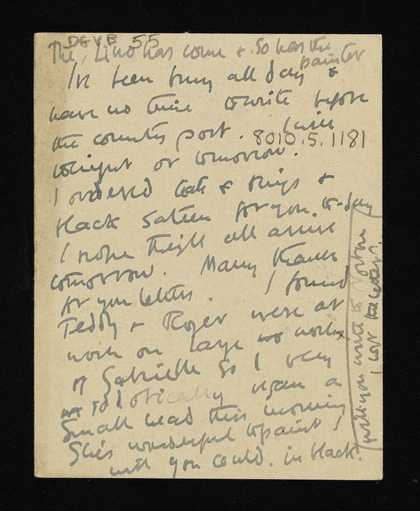 DGVB 55
The, Lino has come & so has the
painter
I've been busy all day &
have no time to write before
the country post. I will
8010.5.1181
tonight or tomorrow.
I ordered & rings &
black sateen for you. to-day
I hope they'll all arrive
tomorrow. Many thanks
for your letters. I found
Teddy & Roger were at
work on large works
of Gabrielle so I very
began a
small head this morning
She's wonderful to paint!
wish you could. in black.
will you write to
I lost the letter.